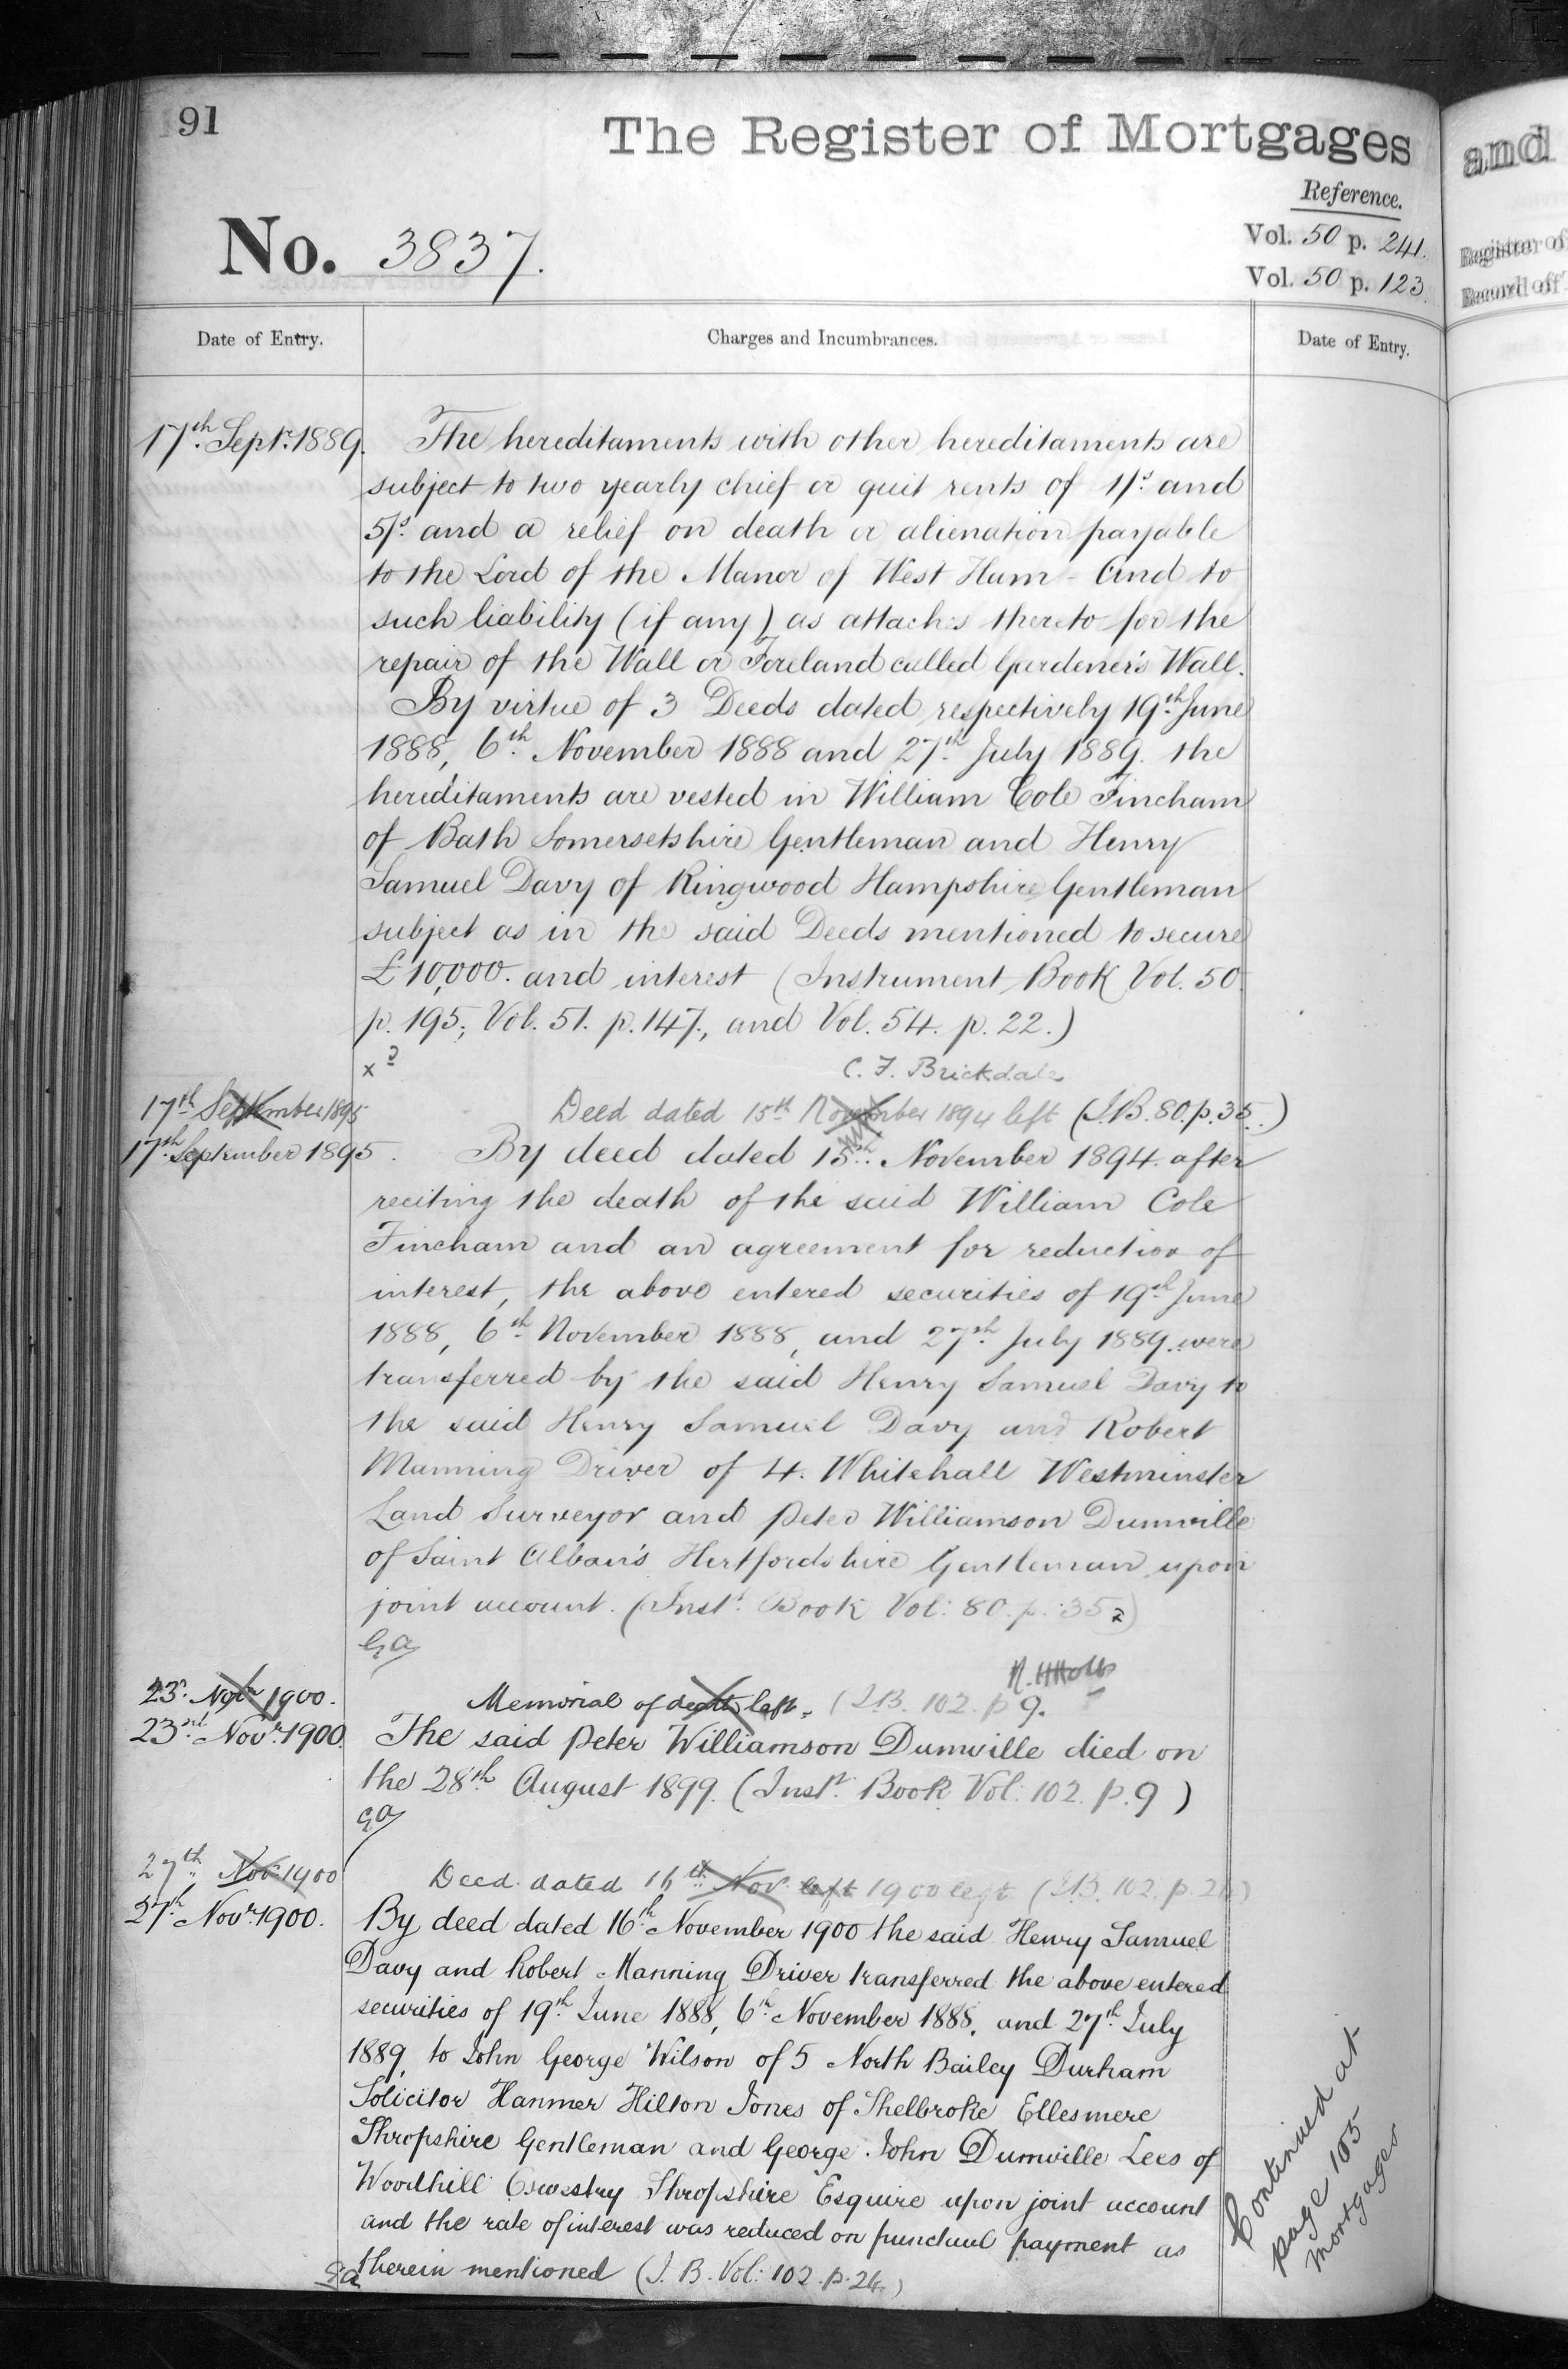 91
The Register of Mortgages
and
Reference.
No. 3837.
Vol. 50 p. 241.
Vol. 50 p. 123.
Register of
Record of
Date of Entry.
Charges and Incumbrances.
Date of Entry.
17th Septr. 1889. The hereditaments with other hereditaments are
subject to two yearly chief or quit rents of 1/s. and
5/s. and a relief on death or alienation payable
to the Lord of the Manor of West Ham - And to
such liability (if any) as attaches thereto for the
repair of the Wall or Foreland called Gardener's Wall.
By virtue of 3 Deeds dated respectively 19th June
1888, 6th November 1888 and 27th July 1889. the
hereditaments are vested in William Cole Fincham
of Bath Somersetshire Gentleman and Henry
Samuel Davy of Ringwood Hampshire Gentleman
subject as in the said Deeds mentioned to secure
£10,000. and interest (Instrument Book Vol. 50.
p. 195; Vol. 51. p. 147., and Vol. 54. p. 22.)
C. F. Brickdale
17th September 1895 Deed dated 15th November 1894 left (I.B. 80. p. 35.)
17th September 1895. By deed dated 15th November 1894. after
reciting the death of the said William Cole
Fincham and an agreement for reduction of
interest, the above entered securities of 19th June
1888, 6th November 1888, and 27th July 1889. were
transferred by the said Henry Samuel Davy to
the said Henry Samuel Davy and Robert
Manning Driver of 4. Whitehall Westminster
Land Surveyor and Peter Williamson Dumville
of Saint Alban's Hertfordshire Gentleman upon
joint account. (Inst. Book Vol: 80. p. 35)
GA
23. Novr 1900. Memorial of death left. (I.B. 102. p 9.
23rd Novr. 1900. The said Peter Williamson Dumville died on
the 28th August 1899. (Inst. Book Vol: 102. p. 9)
GA
27th Nov. 1900 Deed dated 16th Nov. left 1900 left (I.B. 102. p. 24)
27th Novr. 1900. By deed dated 16th November 1900 the said Henry Samuel
Davy and Robert Manning Driver transferred the above entered
securities of 19th June 1888, 6th November 1888, and 27th July
1889, to John George Wilson of 5 North Bailey Durham
Solicitor Hanmer Hilton Jones of Shelbroke Ellesmere
Shropshire Gentleman and George John Dumville Lees of
Woodhill Oswestry Shropshire Esquire upon joint account
and the rate of interest was reduced on punctual payment as
therein mentioned (I. B. Vol: 102. p. 24.)
GA
Continued at
page 105
Mortgages